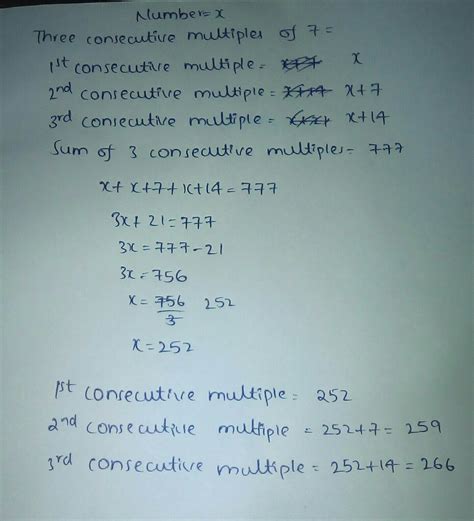 Number = x
Three consecutive multiples of 7 =
1st consecutive multiple = x
2nd consecutive multiple = x+7
3rd consecutive multiple = x+14
Sum of 3 consecutive multiples = 777
x + x+7+x+14 = 777
3x + 21 = 777
3x = 777-21
3x = 756
x = 756/3 252
x = 252
1st consecutive multiple = 252
2nd consecutive multiple = 252+7 = 259
3rd consecutive multiple = 252+14 = 266